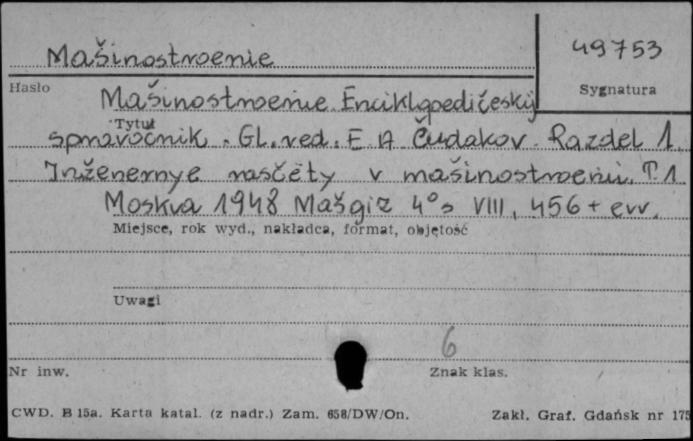 49753
Mašinostroenie
Hasło
Sygnatura
Mašinostroenie. Enciklopedičeskij
Tytuł
spravočnik. Gl. red. E A Čudakov. Razdel 1.
Inženernye rasčëty v mašinostroenii. T. 1
Moskva 1948 Mašgiz 4° s VIII, 456 + err.
Miejsce, rok wyd., nakładca, format, objętość
Uwagi
6
Nr inw.
Znak klas.
CWD. B 15a. Karta katal. (z nadr.) Zam. 658/DW/On.
Zakł. Graf. Gdańsk nr 175